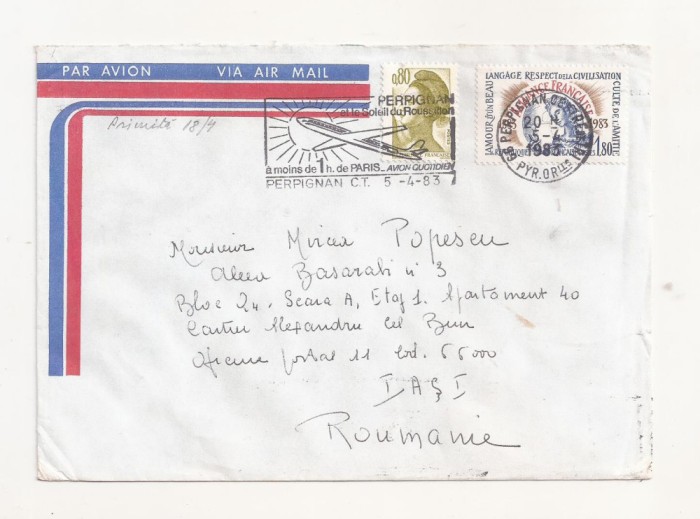 PAR AVION VIA AIR MAIL
0,80
PERPIGNAN
et le Soleil du Roussillon
à moins de 1 h. de PARIS_ AVION QUOTIDIEN
PERPIGNAN C.T. 5 -4-83
FRANÇAISE
AMOUR D'UN BEAU LANGAGE RESPECT DE LA CIVILISATION CULTE DE L'AMITIÉ
1983
1,80
PERPIGNAN
20 H
5-4
1983
PYR. OR.LES
Primită 18/4
Monsieur Mircea Popescu
Aleea Basarabi n° 3
Bloc 24, Scara A, Etaj 1. Apartament 40
Cartier Alexandru cel Bun
Oficiu postal 11 cod. 66000
IAŞI
Roumanie